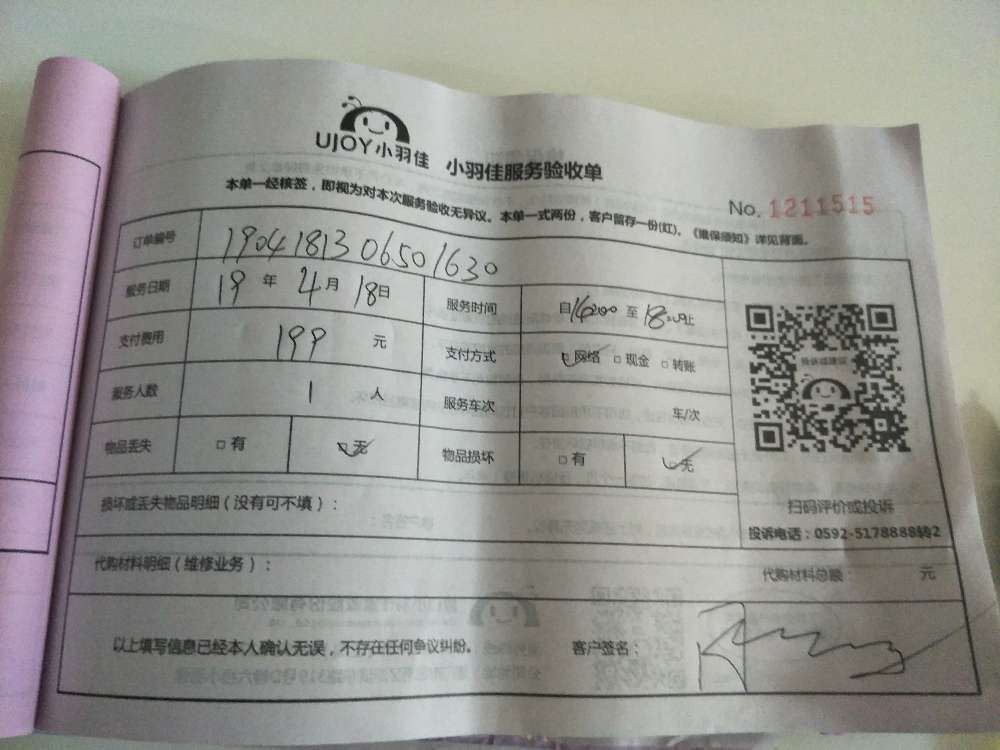 UJOY小羽佳 小羽佳服务验收单
本单一经核签，即视为对本次服务验收无异议。本单一式两份，客户留存一份(红)。《维保须知》详见背面。
No. 1211515
订单编号 1904181306501630
服务日期 19 年 4 月 18 日 服务时间 自 至 止
支付费用 199 元 支付方式 网络 □ 现金 □ 转账
服务人数 1 人 服务车次 车/次
物品丢失 □ 有 □ 无 物品损坏 □ 有 □ 无
损坏或丢失物品明细（没有可不填）：
扫码评价或投诉
投诉电话：0592-5178888转2
代购材料明细（维修业务）： 代购材料总额： 元
以上填写信息已经本人确认无误，不存在任何争议纠纷。 客户签名：